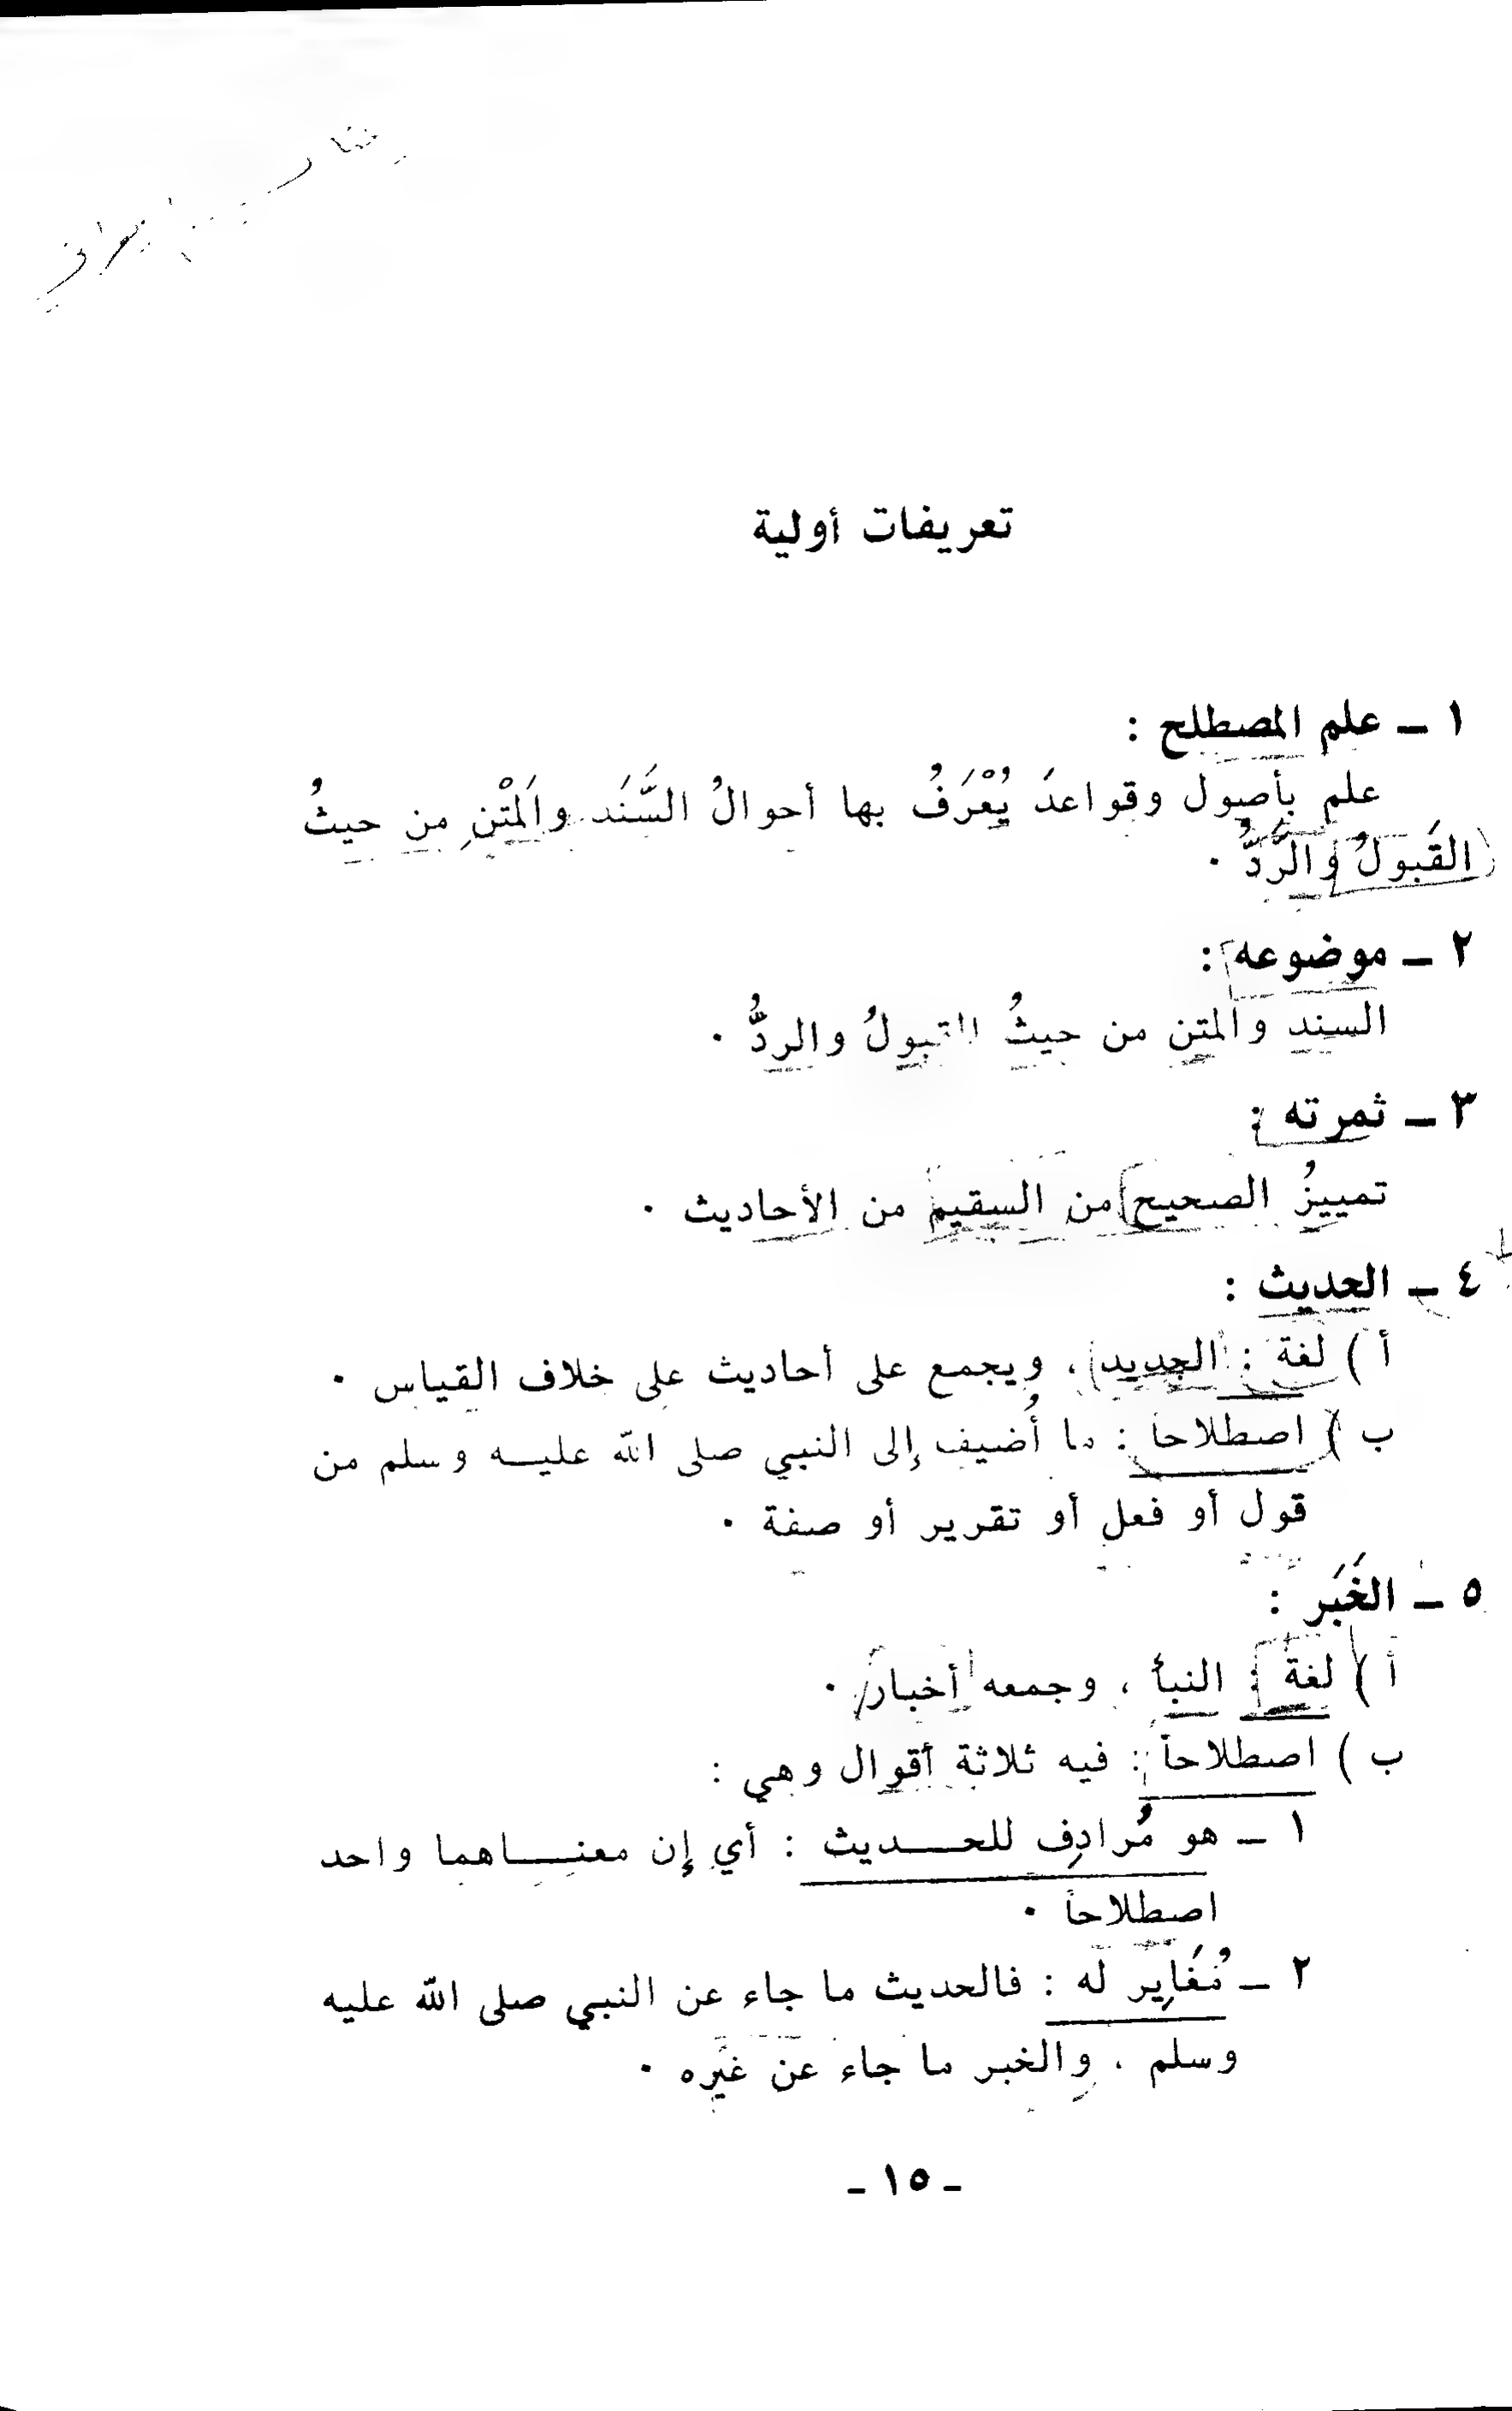 تعريفات أولية
١ ـ علم المصطلح :
علم بأصول وقواعدَ يُعْرَفُ بها أحوالُ السَّنَد والمَتْنِ من حيثُ
القَبولُ والرَّدُّ ٠
٢ ـ موضوعه :
السند والمتن من حيثُ القبولُ والردُّ ٠
٣ ـ ثمرته :
تمييزُ الصحيح من السقيم من الأحاديث ٠
٤ ـ الحديث :
أ ) لغة : الجديد ، ويجمع على أحاديث على خلاف القياس ٠
ب ) اصطلاحاً : ما أُضيف إلى النبي صلى الله عليه وسلم من
قول أو فعل أو تقرير أو صفة ٠
٥ ـ الخَبَر :
أ ) لغة : النبأ ، وجمعه أخبار ٠
ب ) اصطلاحاً : فيه ثلاثة أقوال وهي :
١ ـ هو مُرادِف للحديث : أي إن معناهما واحد
اصطلاحاً ٠
٢ ـ مُغَايِر له : فالحديث ما جاء عن النبي صلى الله عليه
وسلم ، والخبر ما جاء عن غيره ٠
ـ ١٥ ـ